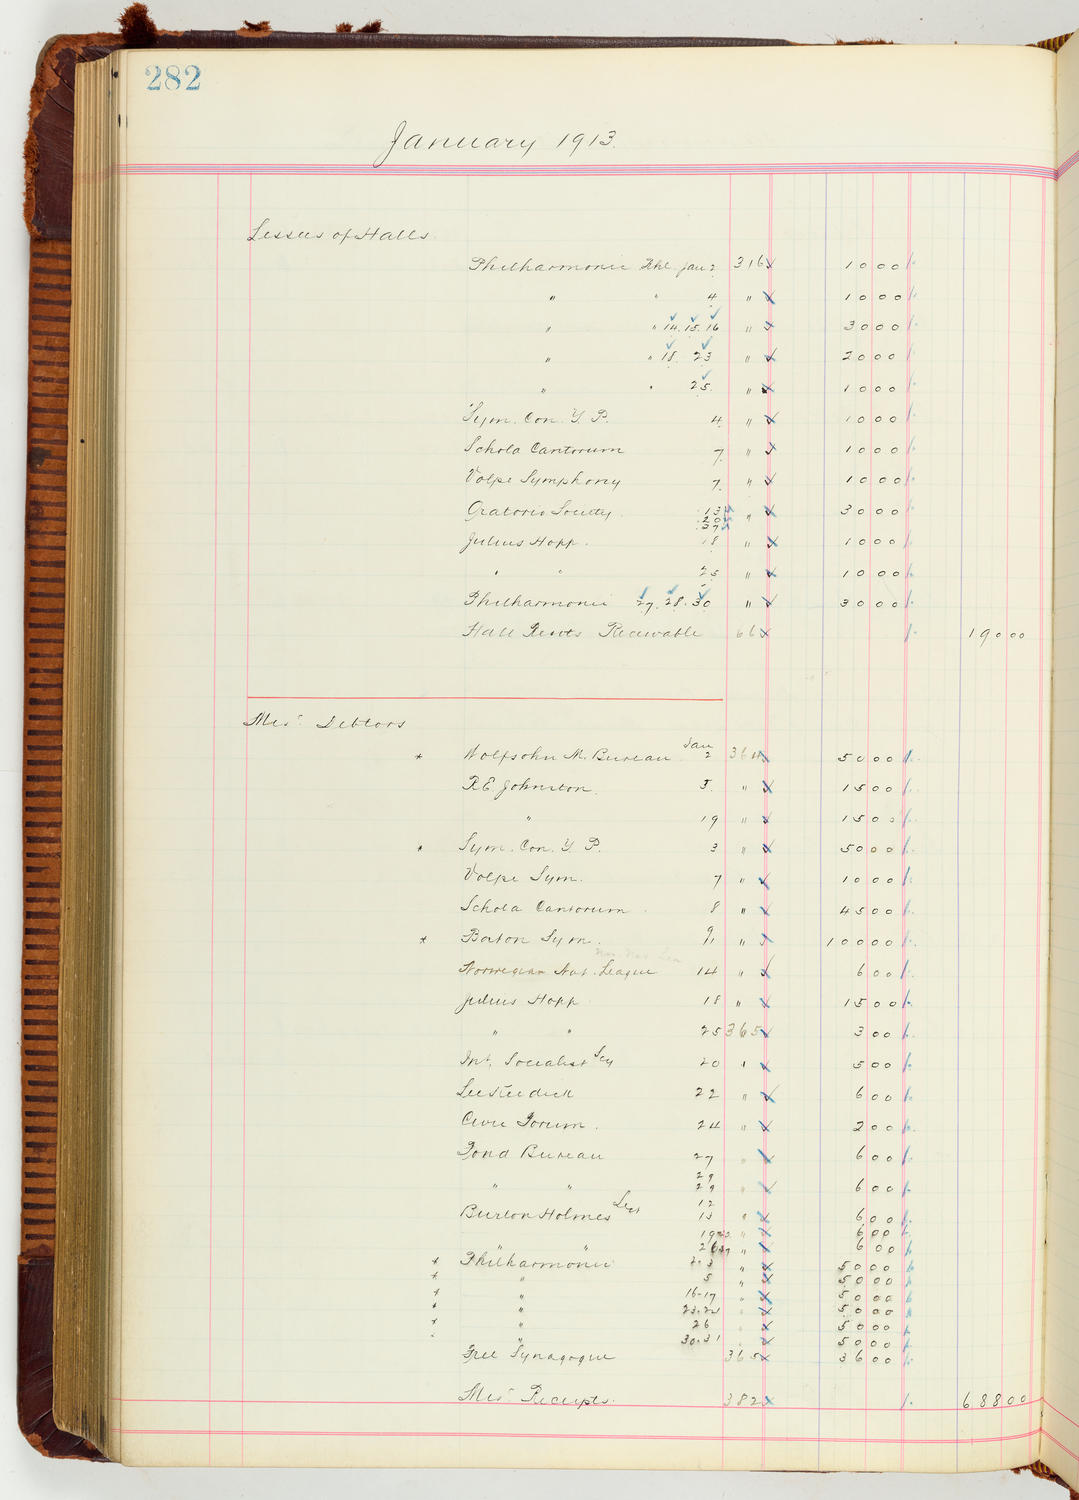 282
January 1913.
Lessees of Halls
Philharmonic Rhl. Jan 2 316 10 00
" " 4 " 10 00
" " 14. 15. 16 " 30 00
" " 18. 23 " 20 00
" " 25. " 10 00
Sym. Con. Y. P. 4. " 10 00
Schola Cantorum 7. " 10 00
Volpe Symphony 7. " 10 00
Oratorio Society. 13 20 27 " 30 00
Julius Hopp. 18 " 10 00
" " 25 " 10 00
Philharmonic 27. 28. 30 " 30 00
Hall Rents Receivable 66 190 00
Mis. Debtors
* Wolfsohn M. Bureau Jan 2 364 50 00
R.E. Johnston. 5. " 15 00
" 19 " 15 00
* Sym. Con. Y. P. 3 " 50 00
Volpe Sym. 7 " 10 00
Schola Cantorum 8 " 45 00
* Boston Sym. 9 11 " 100 00
Norwegian Nat. League 14 " 6 00
Julius Hopp 18 " 15 00
" " 25 365 3 00
Int. Socialist Scy 20 " 5 00
22 " 6 00
Civic Forum. 24 " 2 00
Pond Bureau 27 " 6 00
" " 29 " 6 00
Burton Holmes Lect 12 13 " 6 00
19 20 " 6 00
" " 26 27 " 6 00
* Philharmonic 2. 3 " 50 00
* " 5 " 50 00
* " 16-17 " 50 00
* " 23. 24 " 50 00
* " 26 " 50 00
" 30. 31 " 50 00
Free Synagogue 365 36 00
Mis. Receipts. 382 688 00